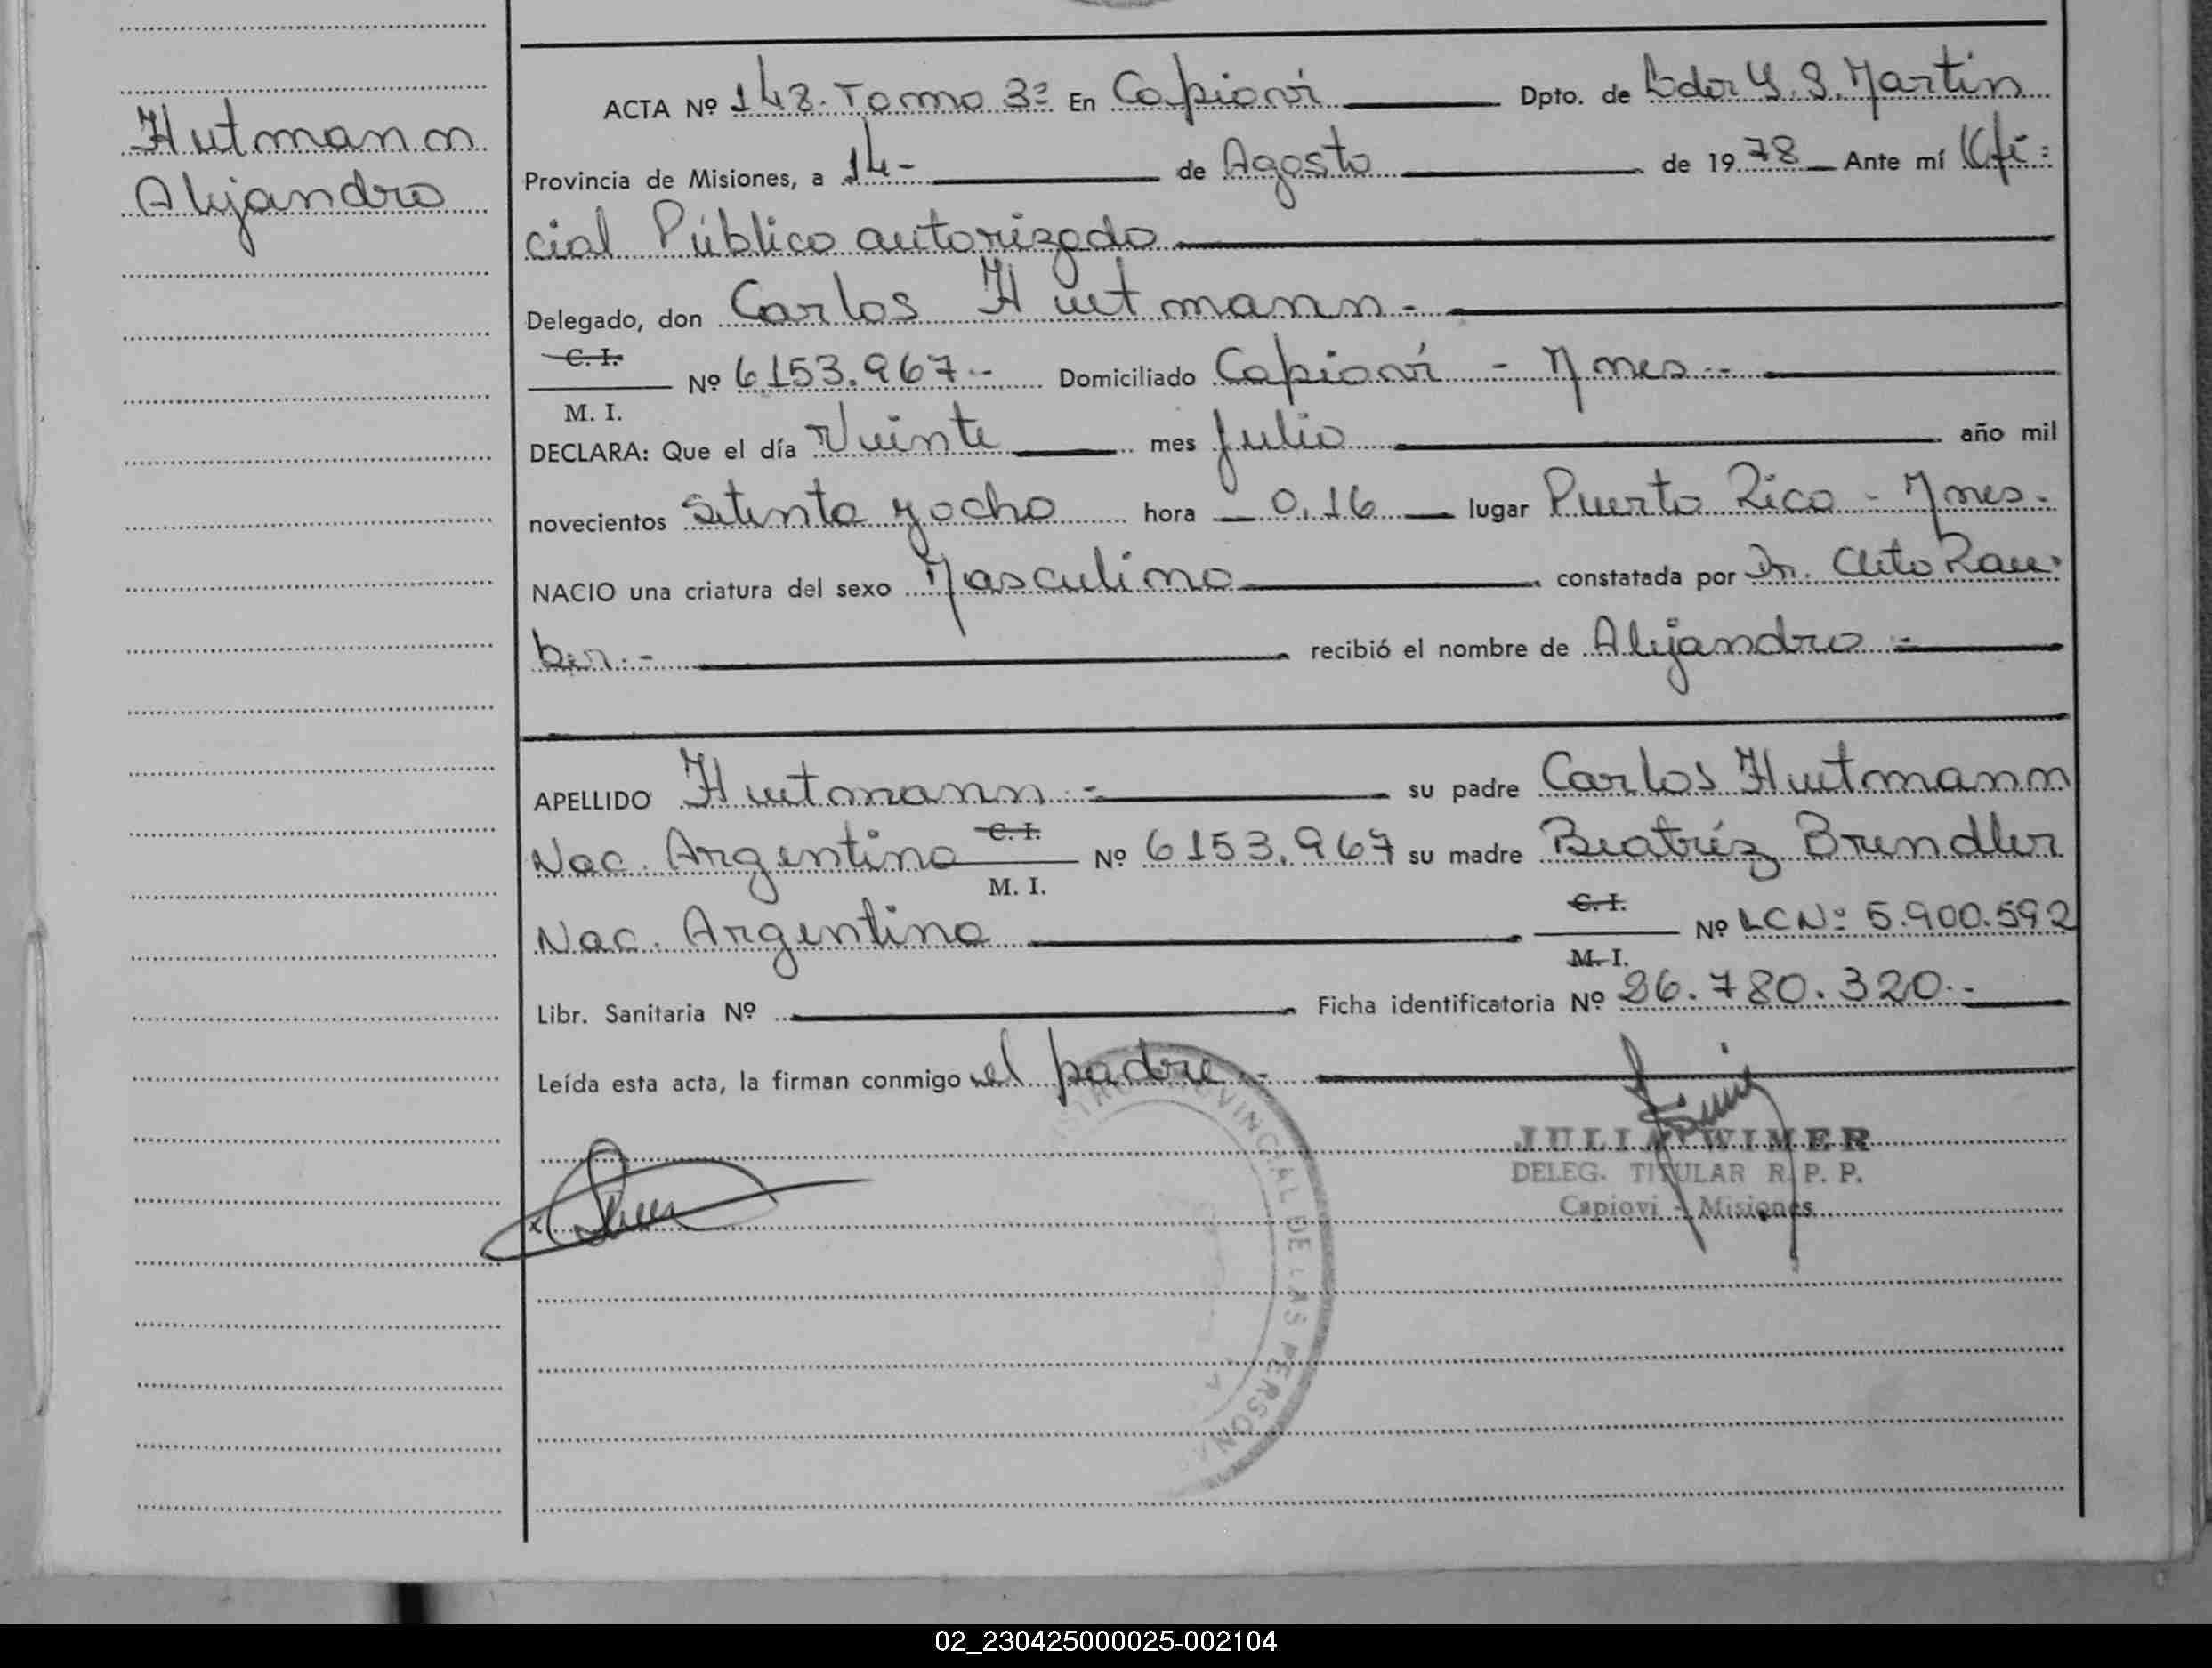 Hutmann
Alejandro
ACTA Nº 148. Tomo 3º En Capioví Dpto. de Ldor G. S. Martin
Provincia de Misiones, a 14- de Agosto de 1978 Ante mí Ofi=
cial Público autorizado
Delegado, don Carlos Hutmann-
C. I.
Nº 6153.967-- Domiciliado Capioví - Mnes--
M. I.
DECLARA: Que el día Veinte mes Julio año mil
novecientos Setenta y ocho hora 0,16 lugar Puerto Rico - Mnes.
NACIO una criatura del sexo Masculino constatada por Dr. Cleto Rau=
ber.- recibió el nombre de Alejandro =
APELLIDO Hutmann = su padre Carlos Hutmann
Nac. Argentina C. I. Nº 6153.967 su madre Beatríz Brendler
M. I.
Nac. Argentina C. I. Nº LC Nº 5.900.592
M. I.
Libr. Sanitaria Nº Ficha identificatoria Nº 26.780.320.-
Leída esta acta, la firman conmigo el padre.-
PROVINCIAL DE LAS PERSONAS
JULIA WIMER
DELEG. TITULAR R. P. P.
Capiovi - Misiones
02_230425000025-002104